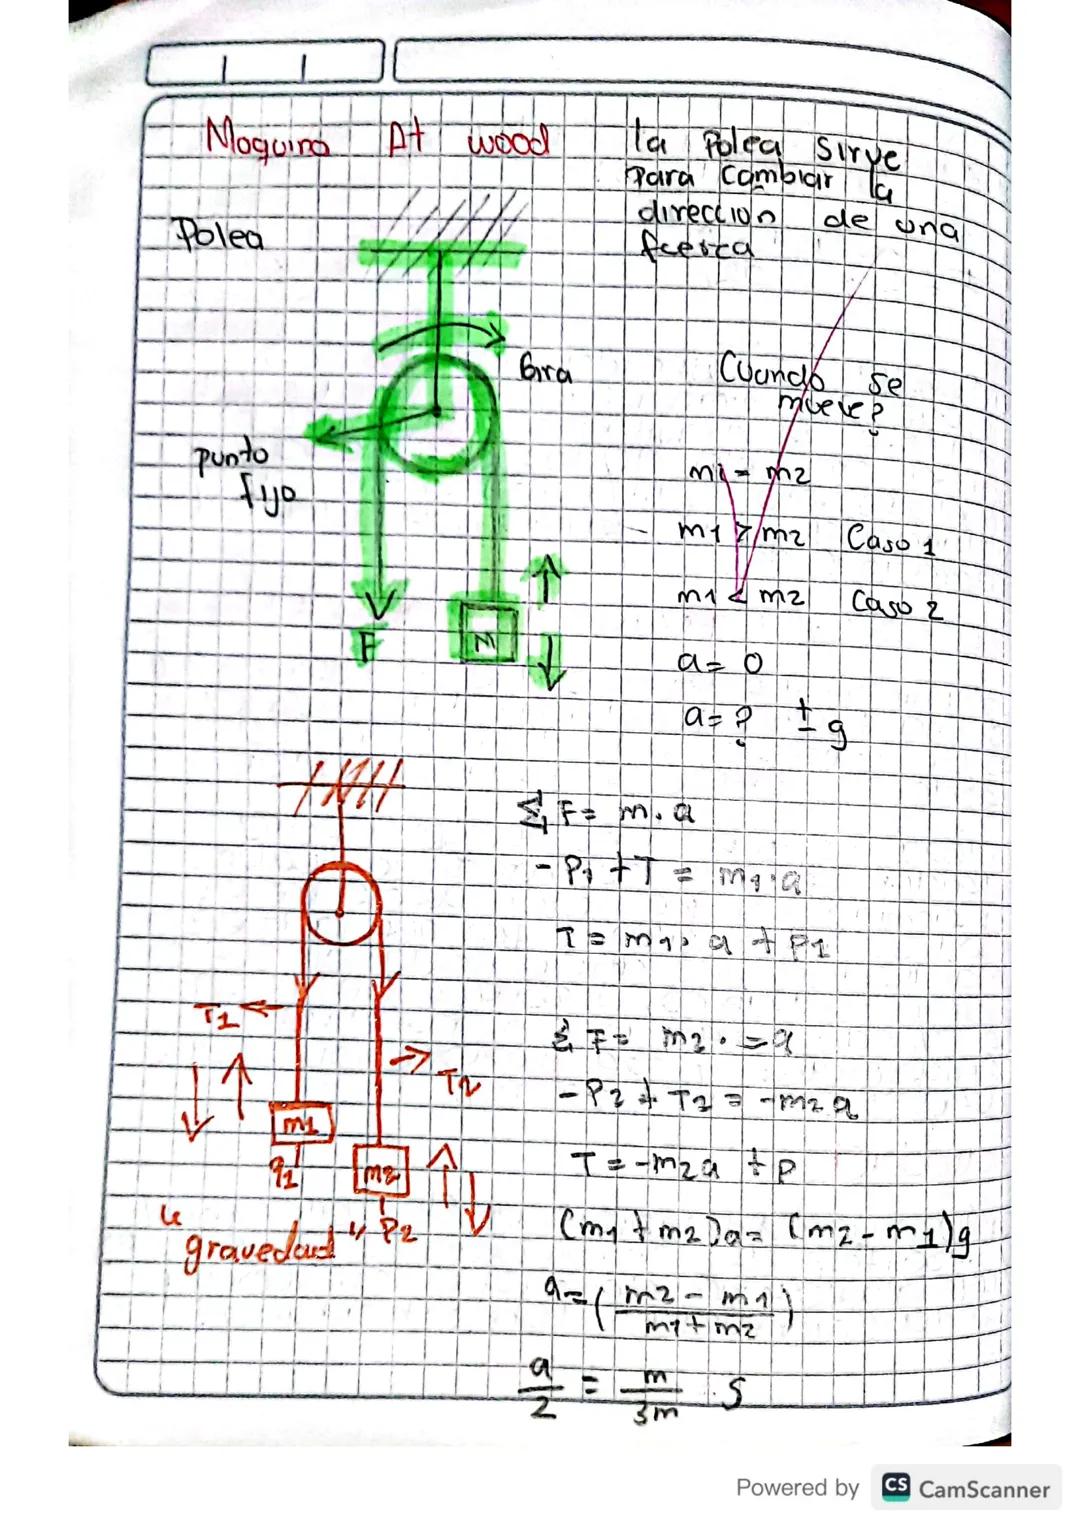 Maquina At wood
la Polea sirve
para cambiar la
direccion de una
fuerza
Polea
Gira
punto
fijo
F
M
Cuando se
mueve?
m1 = m2
m1 > m2 Caso 1
m1 < m2 Caso 2
a = 0
a = ? ± g
Σ F = m . a
- P1 + T = m1 . a
T = m1 . a + P1
T1
T2
m1
m2
P2
"gravedad"
Σ F = m2 . = a
- P2 + T2 = -m2 a
T = -m2a + P
(m1 + m2) a = (m2 - m1) g
a = (m2 - m1 / m1 + m2)
a/2 = m/3m .
Powered by CS CamScanner